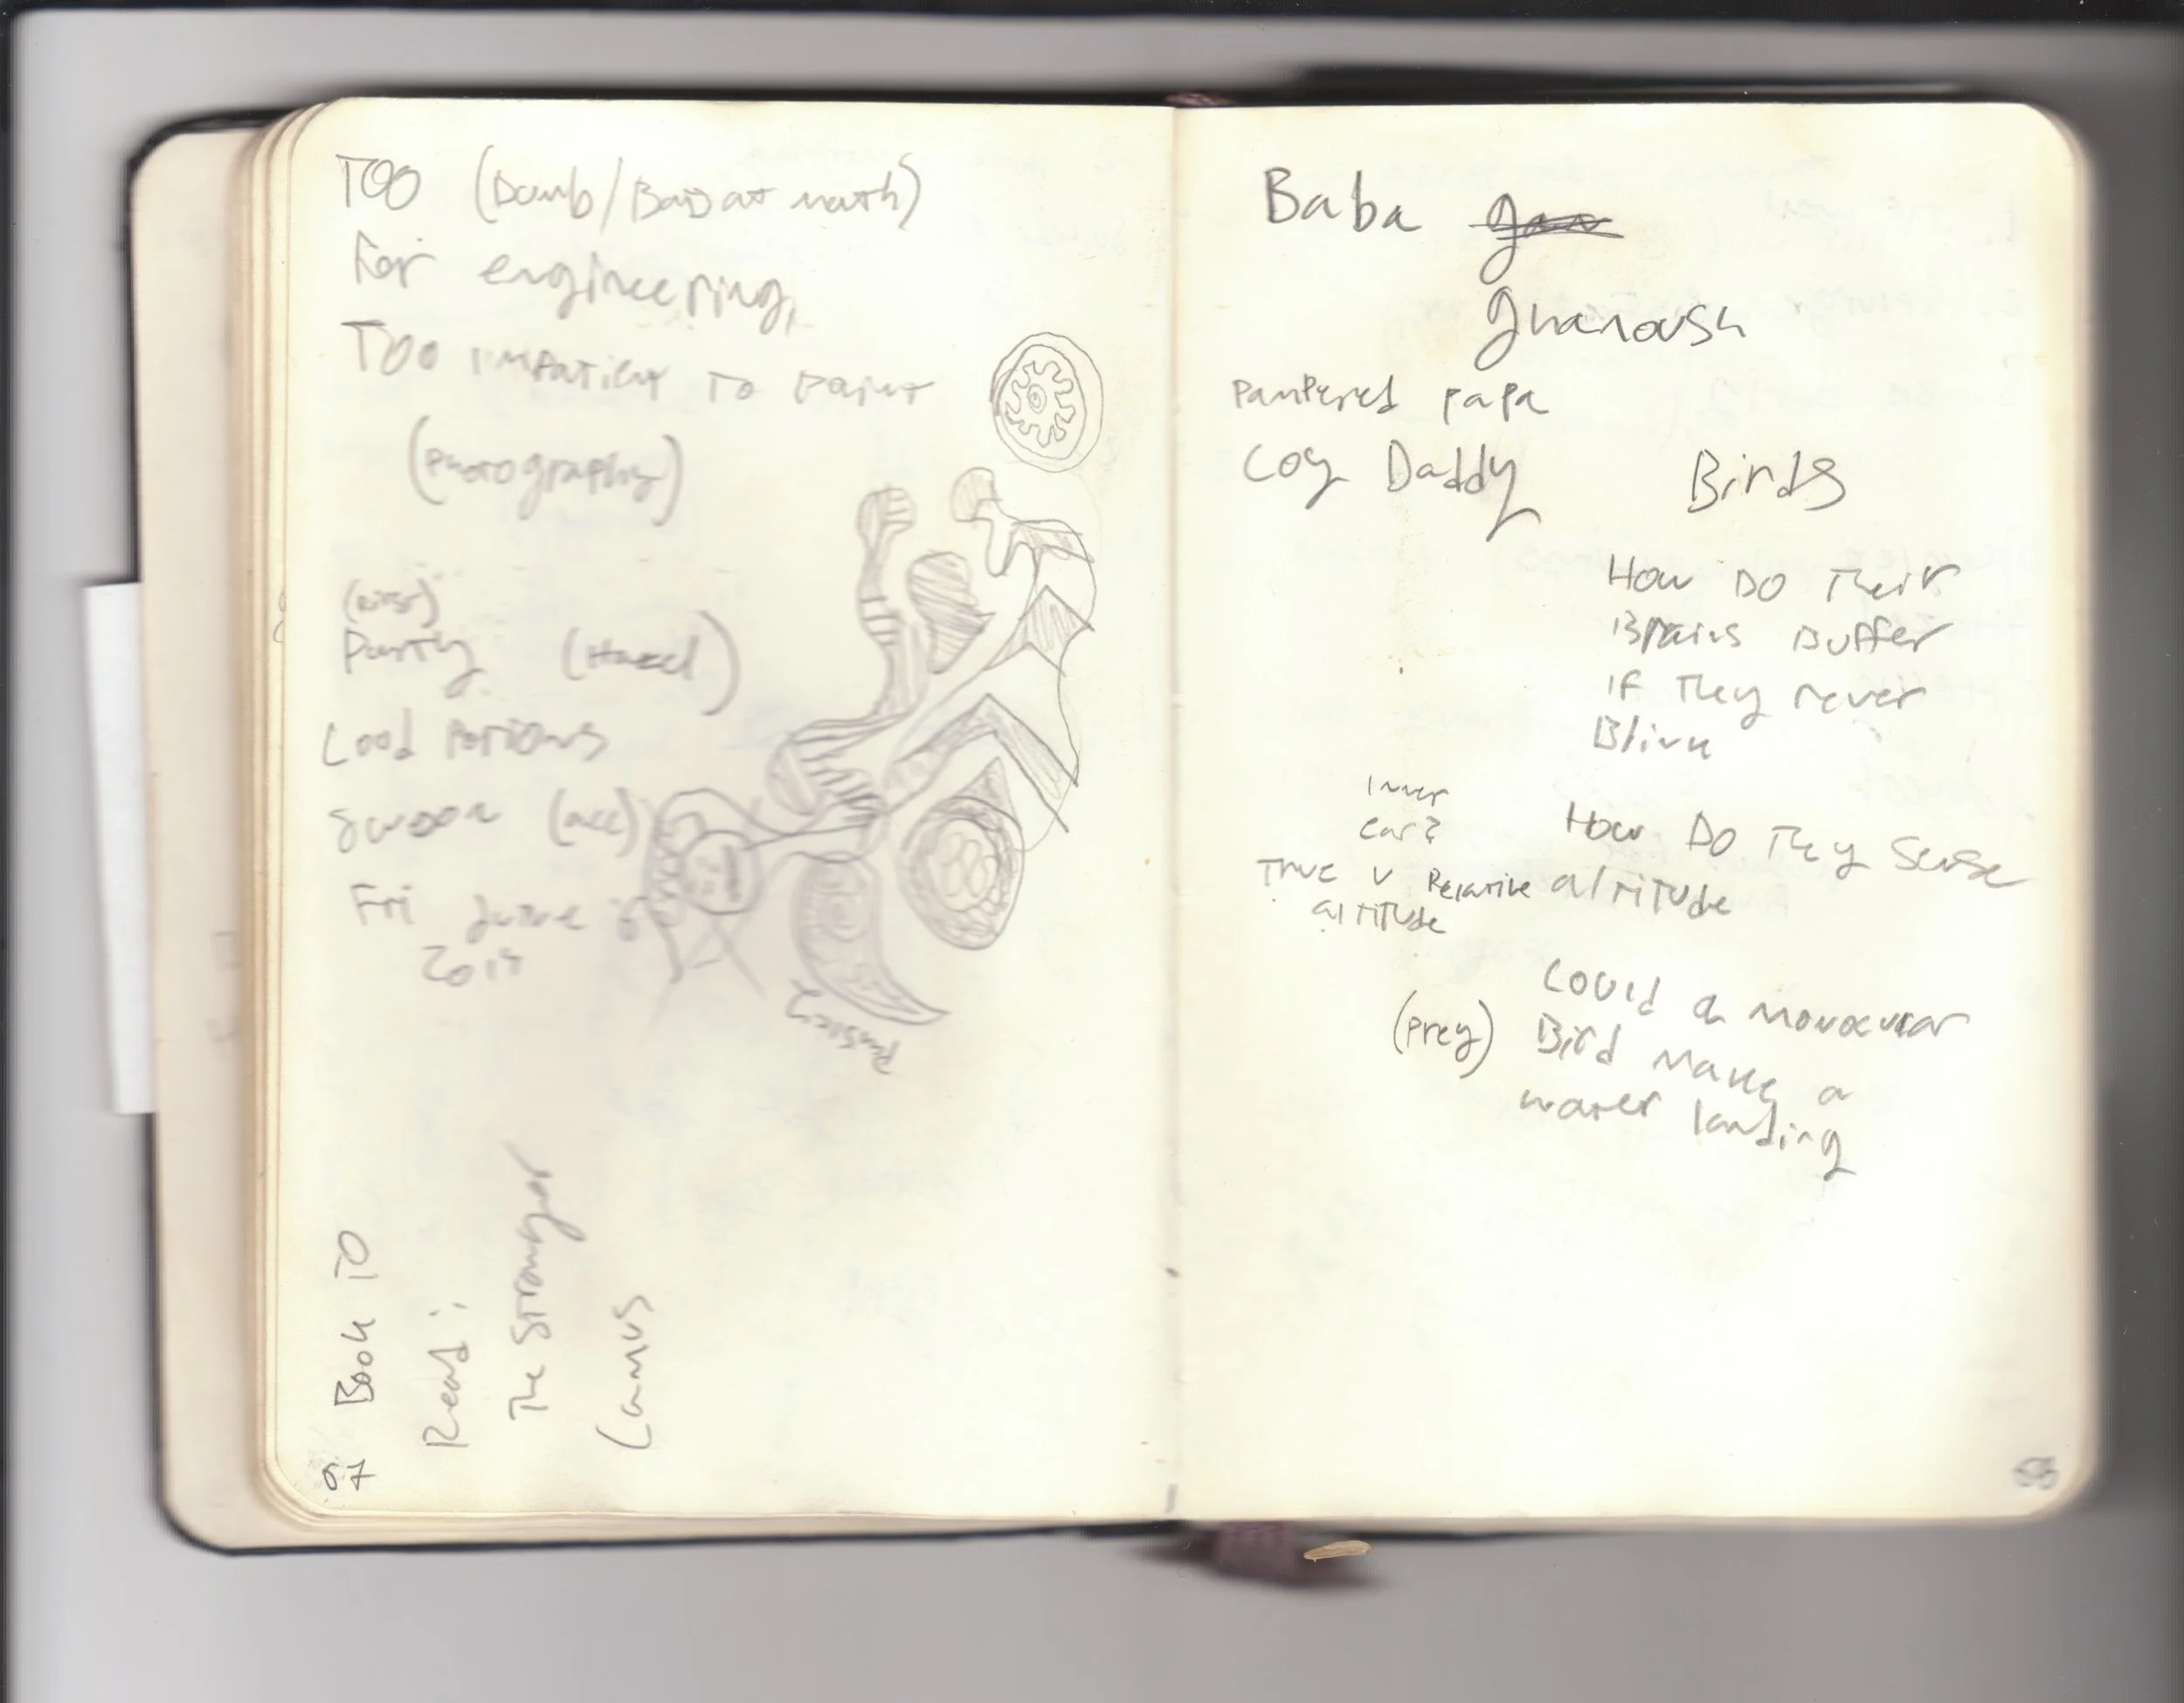 TOO (Dumb/Bad at math)
For engineering,
TOO impatient TO paint
(photography)
Party (Hazel)
Lood Potions
Swoon (acc)
Fri June
Paisley
Book TO
Read:
The Stranger
Camus
67
Baba
ghanoush
Pampered papa
Coy Daddy
Birds
How DO Their
Brains Buffer
if They never
Blink
How DO They Sense
altitude
inner
ear?
True v Relative
altitude
Could a monocular
(prey) Bird make a
water landing